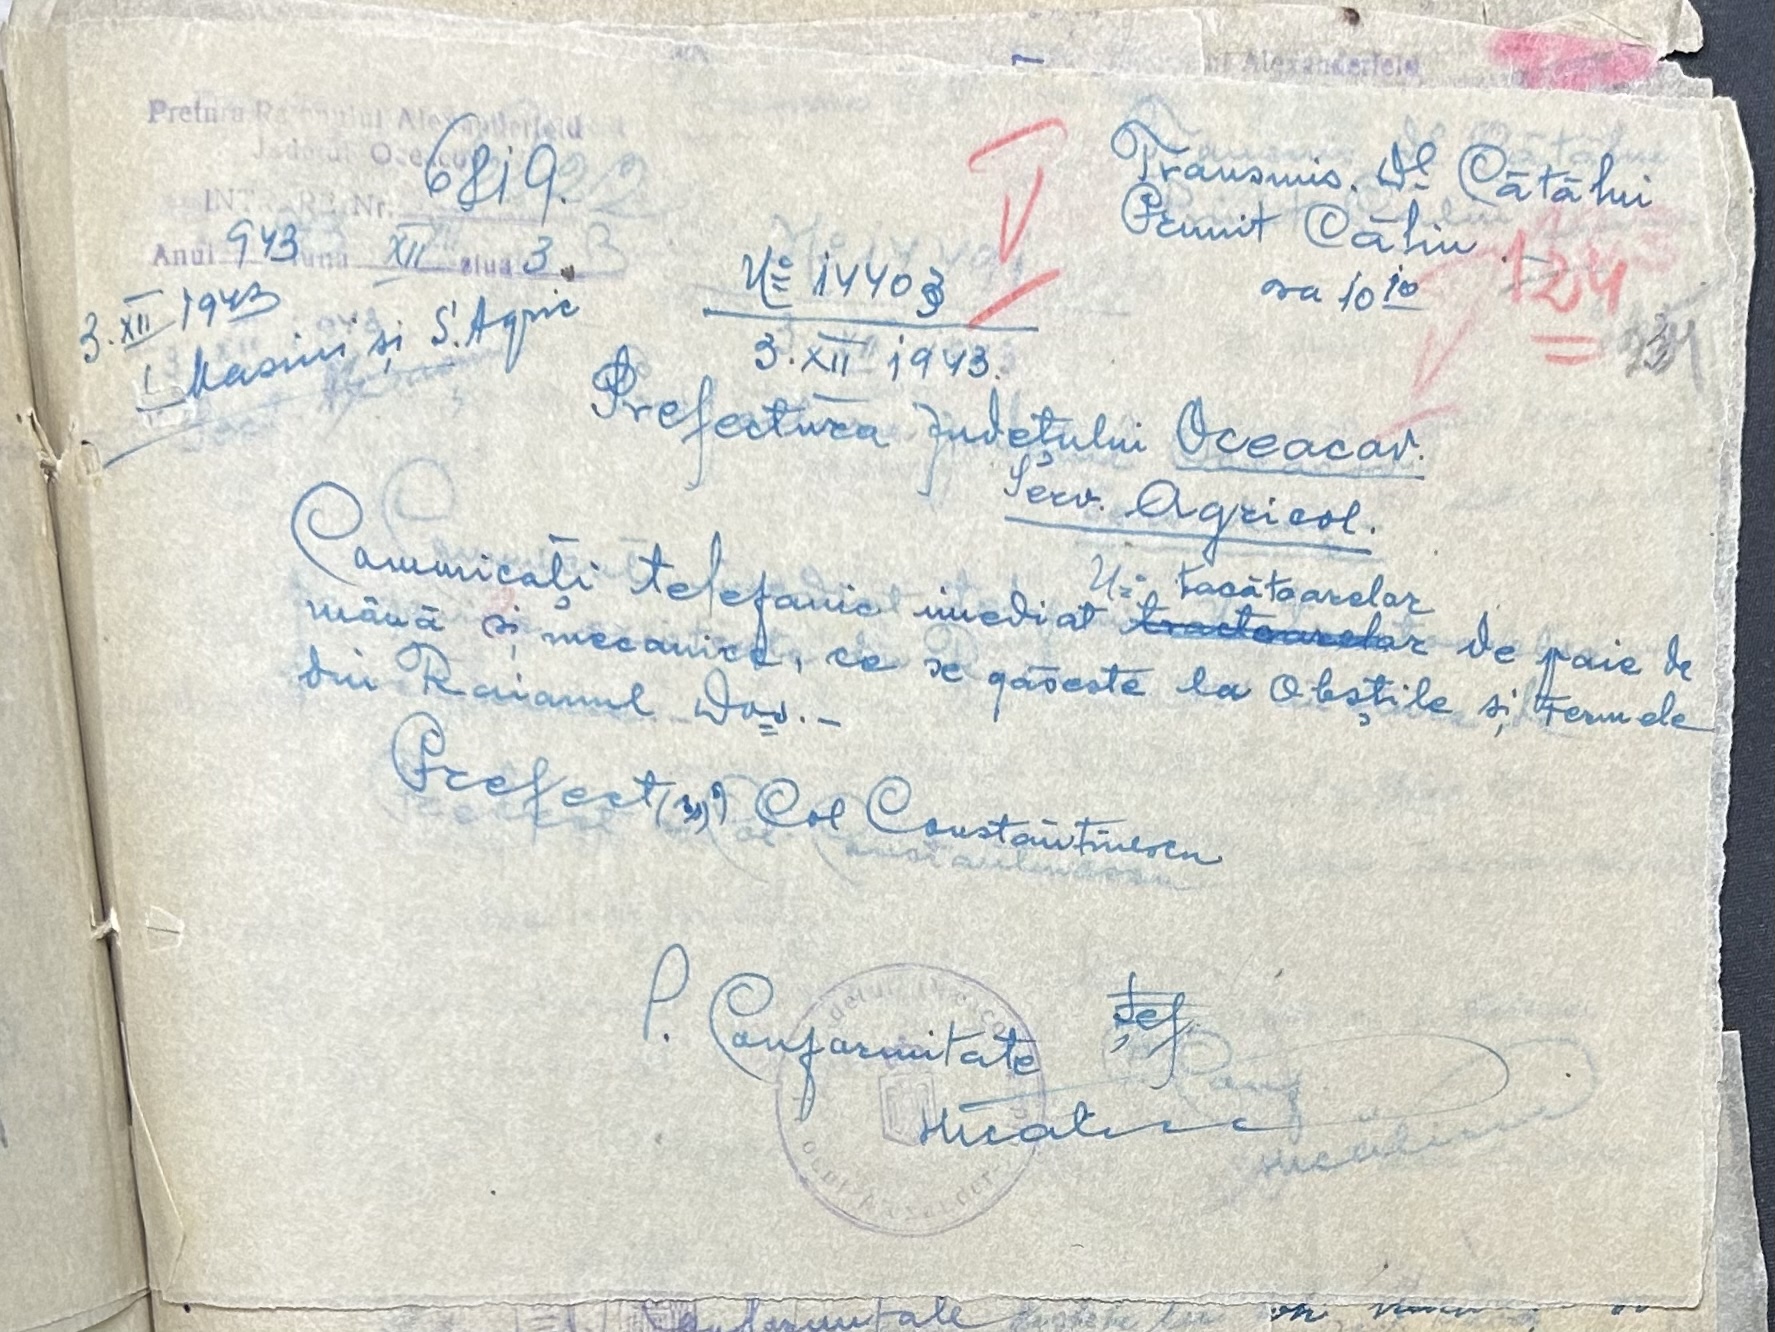 Pretura Raionului Alexanderfeld
Județul Oceacov
6819.
INTRARE Nr.
Anul 943 luna XII ziua 3.
3.XII 1943
Masini și S. Agric
Transmis. Dl Cătălui
Primit Călin
ora 10 10
124
No 14403
3.XII 1943.
Prefectura Județului Oceacov.
Serv. Agricol.
Comunicați telefonic imediat No tocătoarelor tractoarelor de paie de
mână și mecanice, ce se găsește la Obștile și Fermele
din Raionul Dvs. –
Prefect (ss) Col Constantinescu
P. Conformitate
Șef